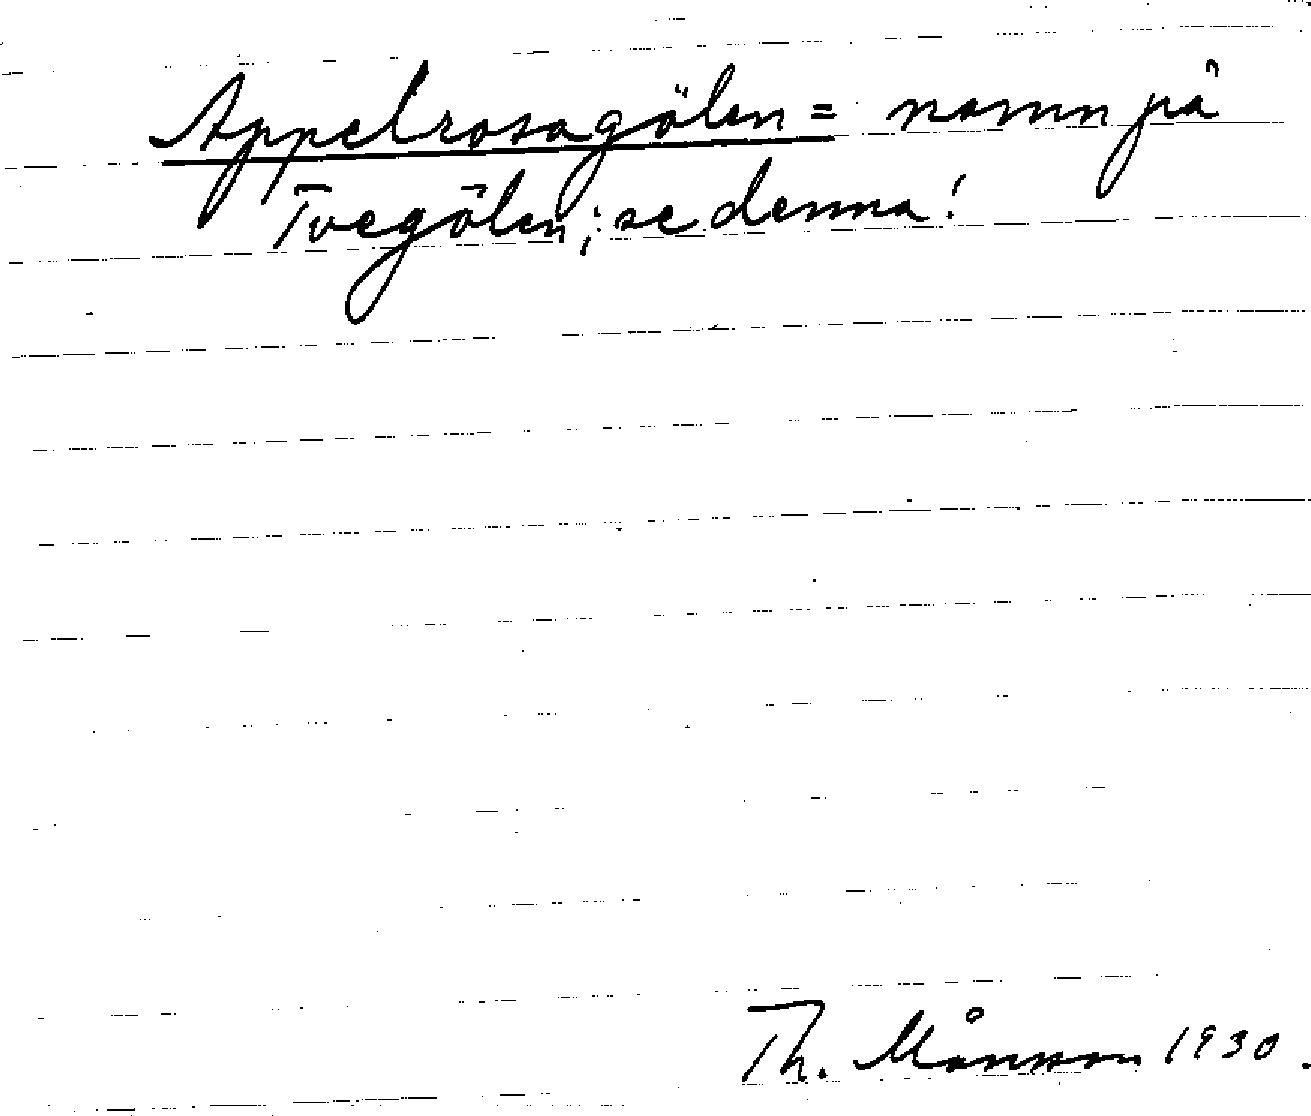 Appelrosagölen = namn på
Tvegölen; se denna!
Th. Månsson 1930.